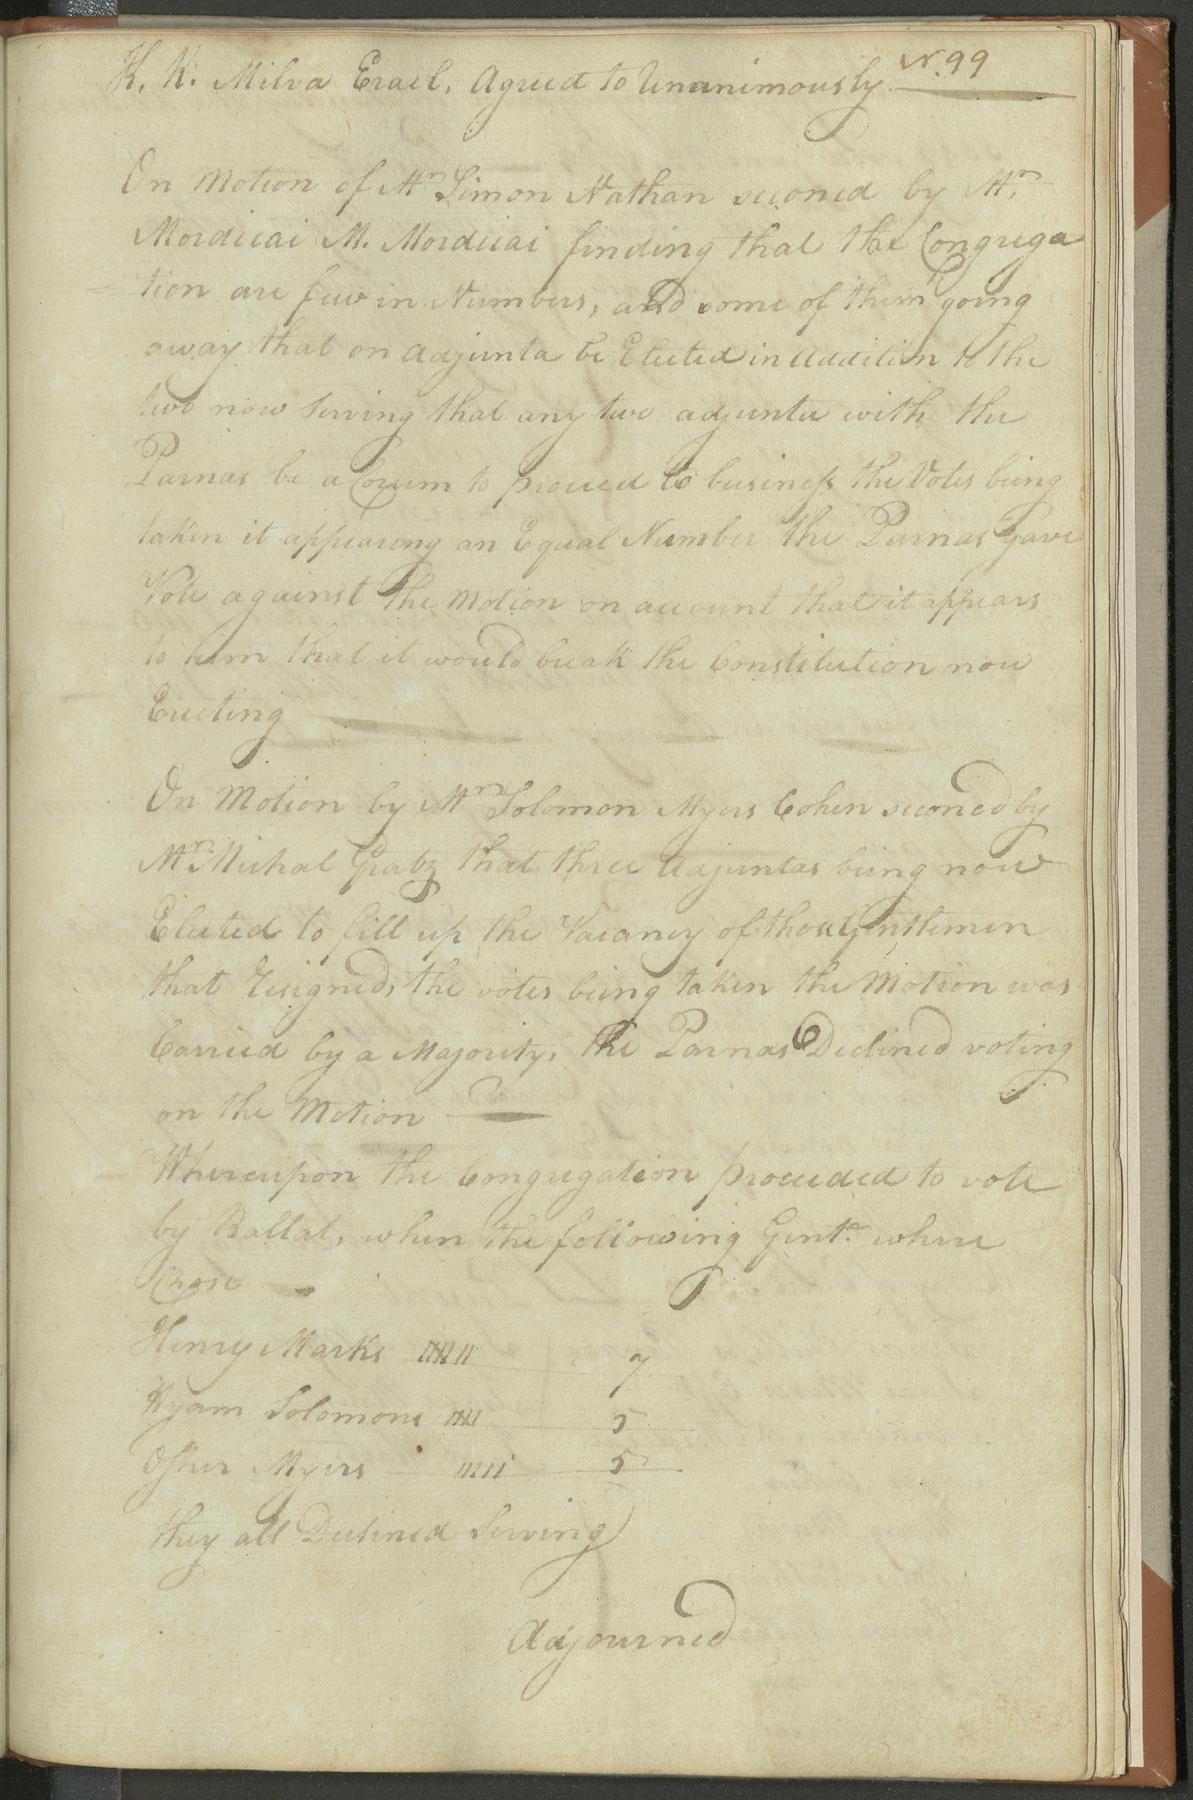 N. 99
K. K: Milva Erael, Agreed to Unanimously
On Motion of Mr Simon Nathan seconed by Mr.
Mordicai M. Mordicai finding that the Congrega
tion are few in Numbers, and some of them going
away that on adjunta be Elected in addition to the
two now Serving that any two adjunta with the
Parnas be a Corum to proceed to business the Votes being
taken it appearing an Equal Number the Parnas gave
Vote against the Motion on account that it appears
to him that it would break the Constitution now
Ericting
On Motion by Mr Solomon Myers Cohen seconed by
Mr. Michal Gratz that three Adjuntas being now
Elected to fill up the Vacancy of those Gentlemen
that Resigned, the votes being taken the Motion was
Carried by a Majority. the Parnas Declined voting
on the Motion
Whereupon the Congregation proceeded to vote
by Ballat, when the following Gentn. where
Chose
Henry Marks 7
Hyam Solomons 5
Osher Myers 5
they all Declined Serving
Adjourned